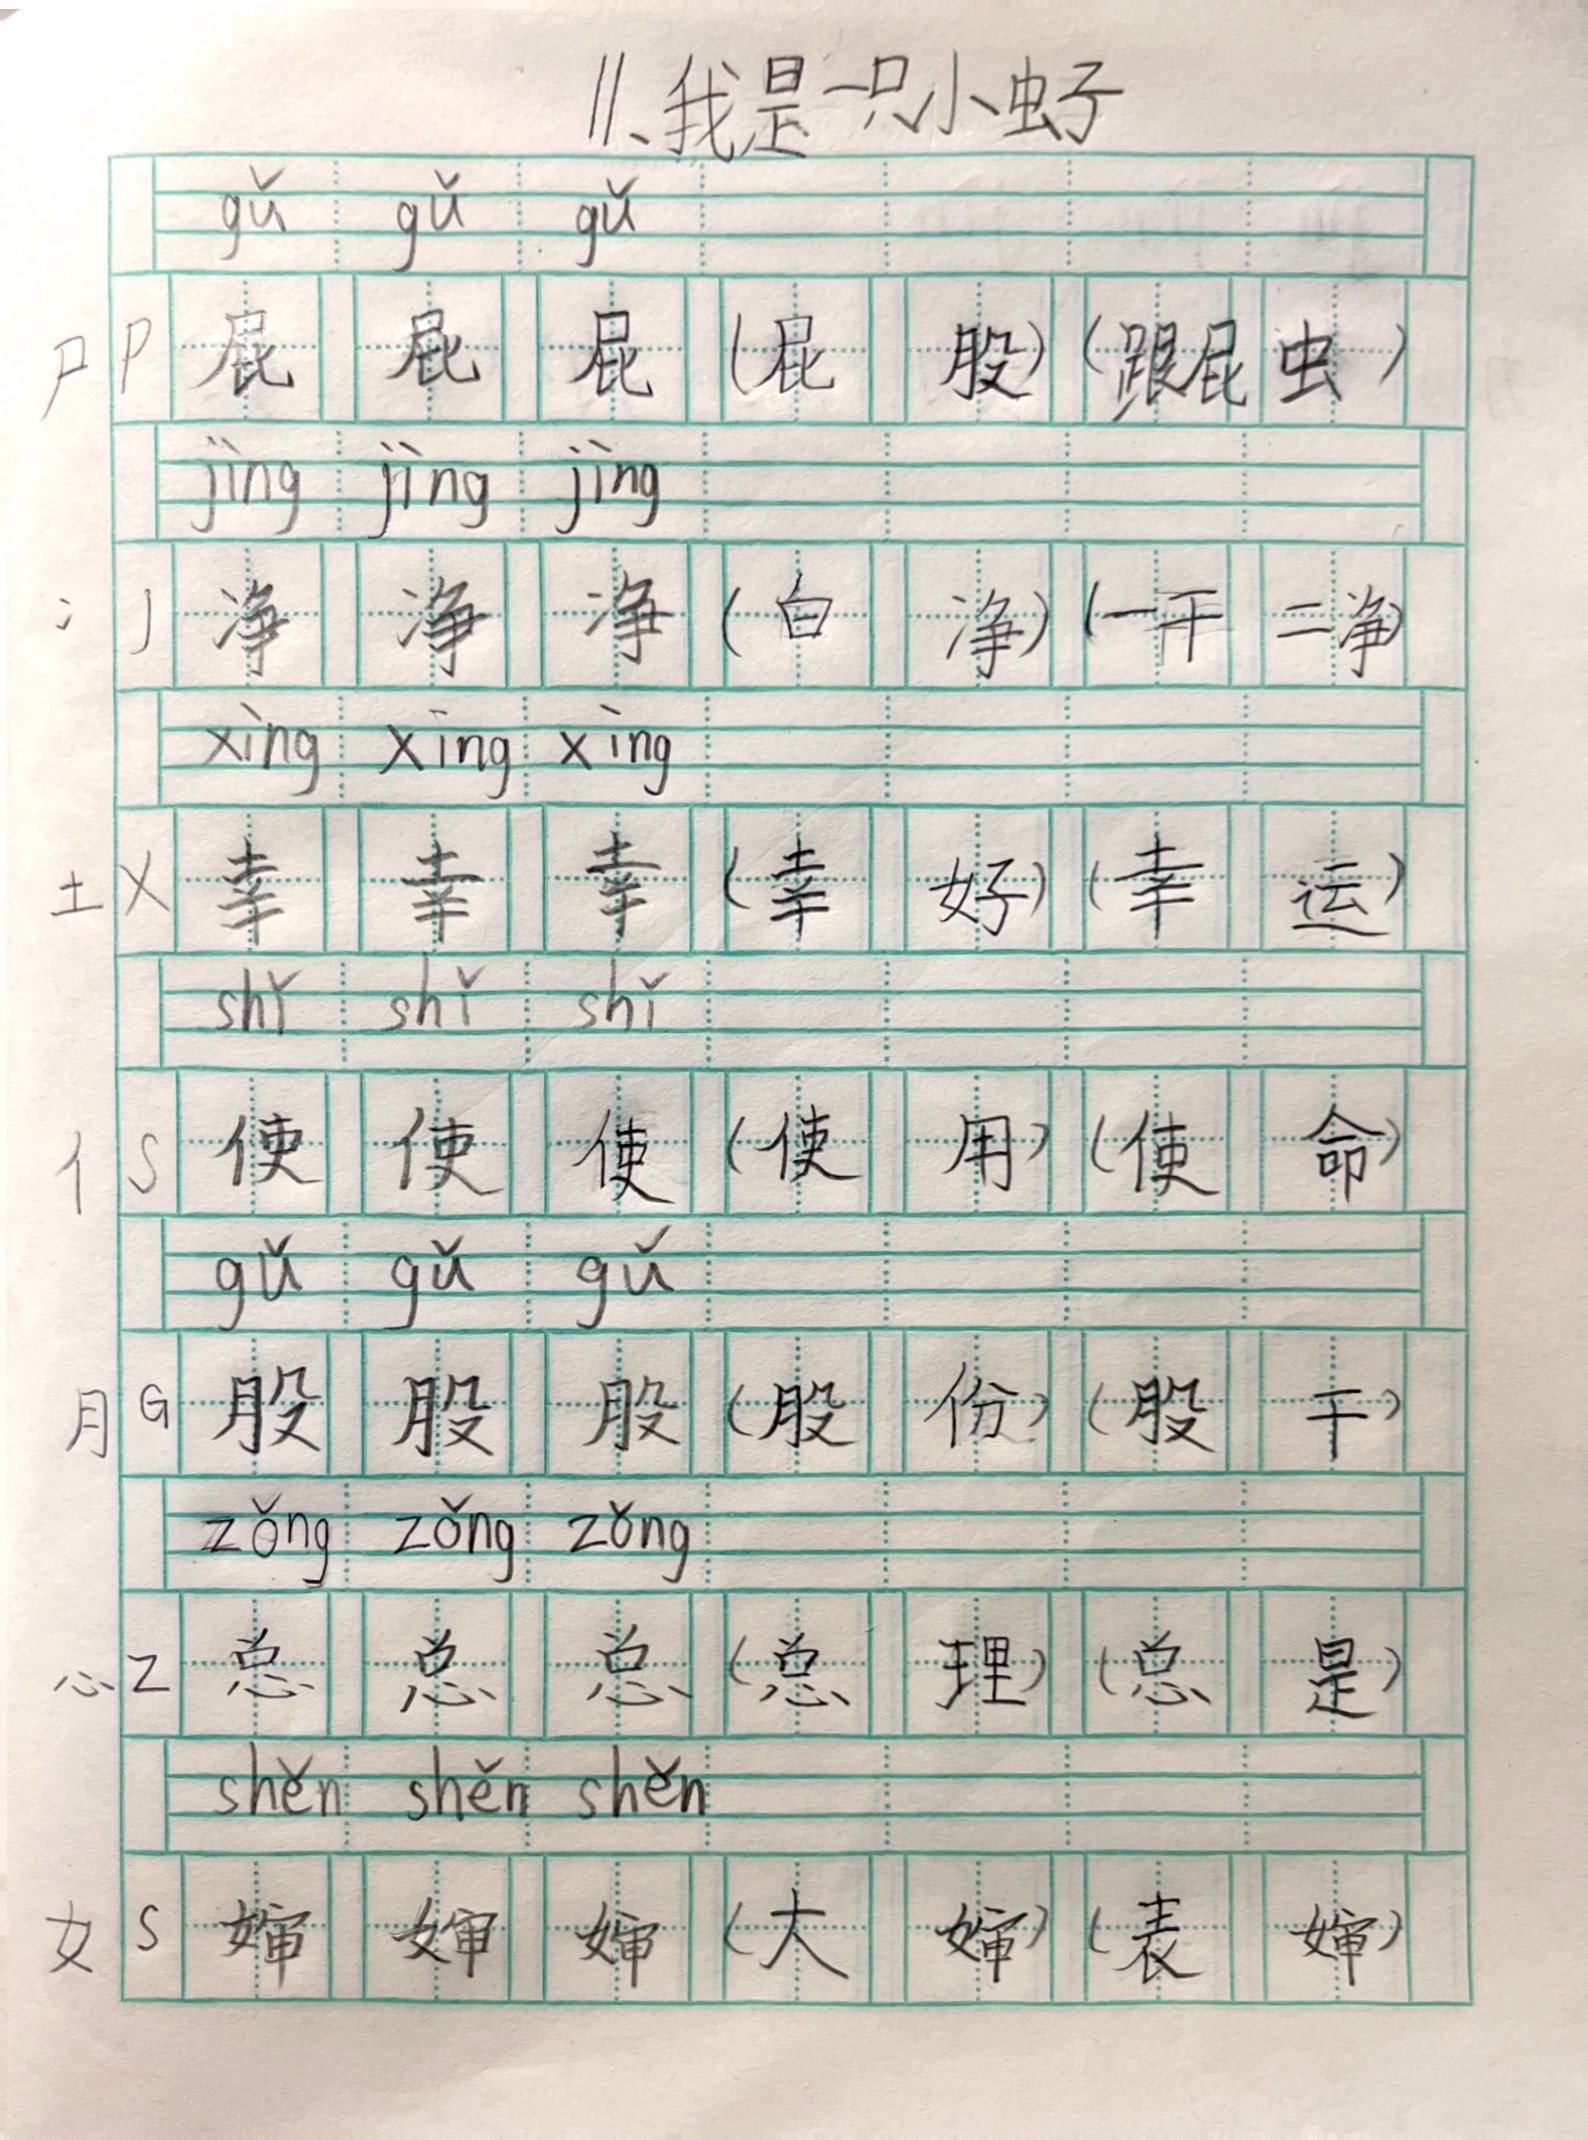 11、我是一只小虫子
gǔ gǔ gǔ
尸 P 屁 屁 屁 (屁股) (跟屁虫)
jìng jìng jìng
冫 J 净 净 净 (白净) (一干二净)
xìng xìng xìng
土 X 幸 幸 幸 (幸好) (幸运)
shǐ shǐ shǐ
亻 S 使 使 使 (使用) (使命)
gǔ gǔ gǔ
月 G 股 股 股 (股份) (股干)
zǒng zǒng zǒng
心 Z 总 总 总 (总理) (总是)
shěn shěn shěn
女 S 婶 婶 婶 (大婶) (表婶)